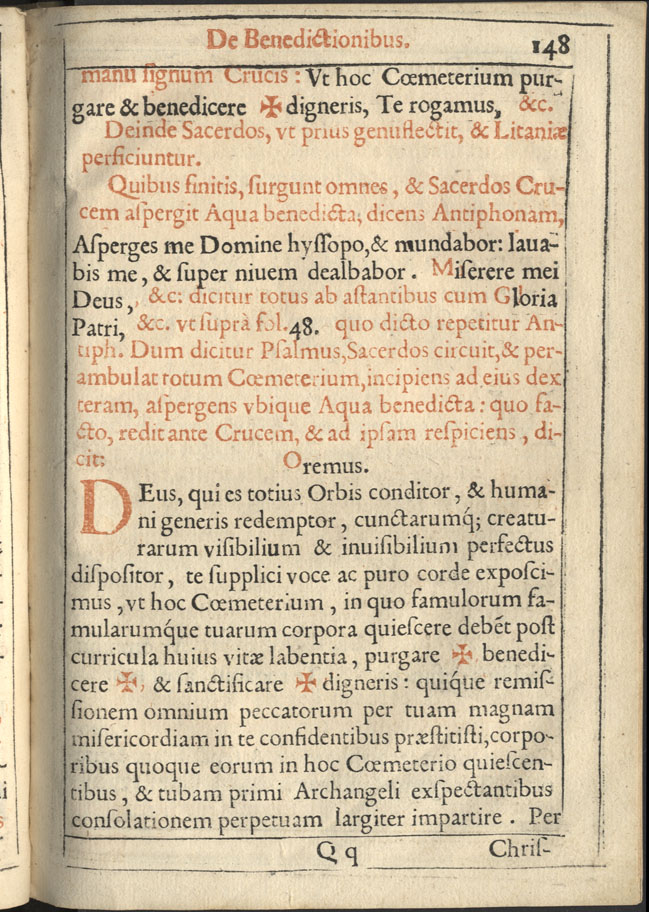 De Benedictionibus.
148
manu ſignum Crucis : Vt hoc Cœmeterium pur-
gare & benedicere ✠ digneris, Te rogamus, &c.
Deinde Sacerdos, vt prius genuflectit, & Litaniæ
perficiuntur.
Quibus finitis, ſurgunt omnes, & Sacerdos Cru-
cem aſpergit Aqua benedicta, dicens Antiphonam,
Aſperges me Domine hyſſopo, & mundabor: laua-
bis me, & ſuper niuem dealbabor. Miſerere mei
Deus, &c: dicitur totus ab aſtantibus cum Gloria
Patri, &c. vt ſuprà fol. 48. quo dicto repetitur An-
tiph. Dum dicitur Pſalmus, Sacerdos circuit, & per-
ambulat totum Cœmeterium, incipiens ad eius dex
teram, aſpergens vbique Aqua benedicta: quo fa-
cto, redit ante Crucem, & ad ipſam reſpiciens, di-
cit: Oremus.
DEus, qui es totius Orbis conditor, & huma-
ni generis redemptor, cunctarumq́; creatu-
rarum viſibilium & inuiſibilium perfectus
diſpoſitor, te ſupplici voce ac puro corde expoſci-
mus, vt hoc Cœmeterium, in quo famulorum fa-
mularumq́ue tuarum corpora quieſcere debēt poſt
curricula huius vitæ labentia, purgare ✠, benedi-
cere ✠, & ſanctificare ✠ digneris: quiq́ue remiſ-
ſionem omnium peccatorum per tuam magnam
miſericordiam in te confidentibus præſtitiſti, corpo-
ribus quoque eorum in hoc Cœmeterio quieſcen-
tibus, & tubam primi Archangeli exſpectantibus
conſolationem perpetuam largiter impartire. Per
Q q
Chriſ-